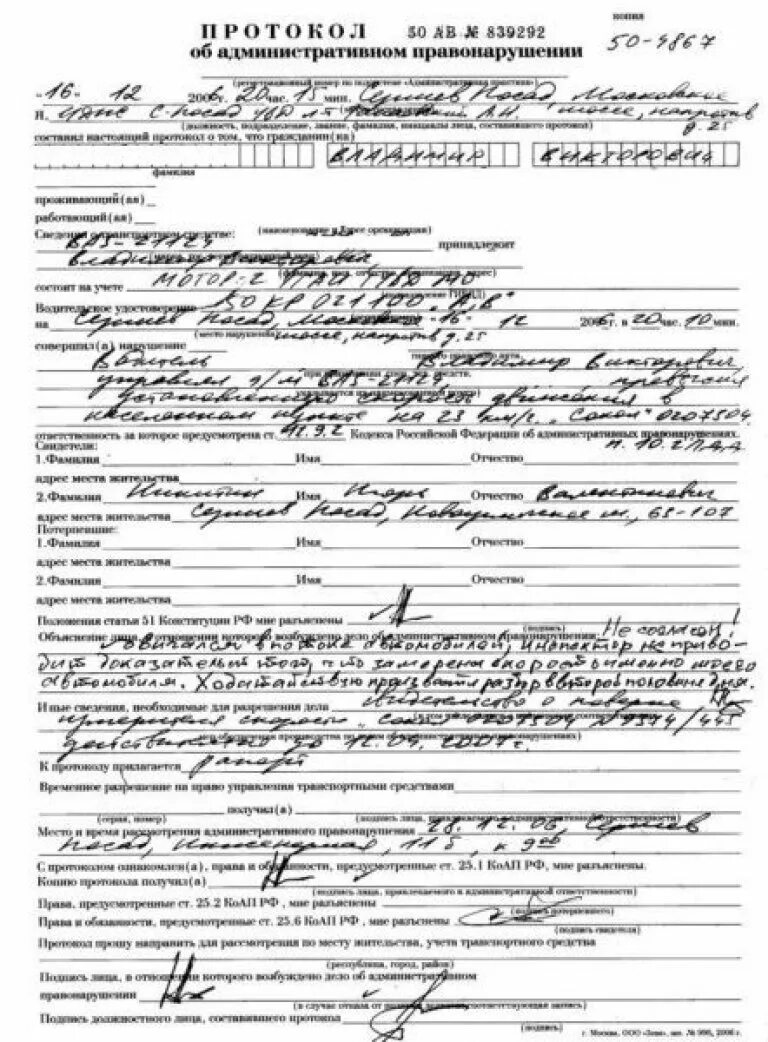 копия
ПРОТОКОЛ 50 АВ № 839292
об административном правонарушении 50-4867
(регистрационный номер по подсистеме «Административная практика»)
"16" 12 2006г. 20 час. 15 мин. Сергиев Посад, Московское
Я, С-Посад УВД л-т шоссе, напротив
(должность, подразделение, звание, фамилия, инициалы лица, составившего протокол) д. 25
составил настоящий протокол о том, что гражданин(ка)
ВЛАДИМИР ВИКТОРОВИЧ
фамилия
проживающий(ая)
работающий(ая)
(наименование и адрес организации)
Сведения о транспортном средстве: ВАЗ-21124 принадлежит
Владимир Викторович
состоит на учете МОТОР-2 УГАИ ГУВД МО
Водительское удостоверение 50 КР 021100 "А,В"
на Сергиев Посад, Московское "16" 12 2006г. в 20 час. 10 мин.
(место нарушения) шоссе, напротив д. 25
совершил(а) нарушение
Водитель Владимир Викторович,
управлял а/м ВАЗ-21124, превысил
установленную скорость движения в
населенном пункте на 23 км/ч. "Сокол" 0207504
ответственность за которое предусмотрена ст. 12.9.2 Кодекса Российской Федерации об административных правонарушениях.
Свидетели: п. 10.2 ПДД
1.Фамилия Имя Отчество
адрес места жительства
2.Фамилия Никитин Имя Игорь Отчество Валентинович
адрес места жительства Сергиев Посад, ш., 68-107
Потерпевшие:
1.Фамилия Имя Отчество
адрес места жительства
2.Фамилия Имя Отчество
адрес места жительства
Положения статьи 51 Конституции РФ мне разъяснены
(подпись)
Объяснение лица, в отношении которого возбуждено дело об административном правонарушении: Не согласен!
Двигался в потоке автомобилей, инспектор не приво-
дит доказательств того, что замерена скорость именно моего
автомобиля. Ходатайствую произвести разбор во второй половине дня.
Иные сведения, необходимые для разрешения дела Свидетельство о поверке
измерителя скорости "Сокол" 0207504 № 7374/445
действительно до 12.04.2007г.
К протоколу прилагается рапорт
Временное разрешение на право управления транспортными средствами
получил(а)
(серия, номер) (подпись лица, привлекаемого к административной ответственности)
Место и время рассмотрения административного правонарушения 28.12.06, Сергиев
Посад, Инженерная, 11б, к 9 00
С протоколом ознакомлен(а), права и обязанности, предусмотренные ст. 25.1 КоАП РФ, мне разъяснены.
Копию протокола получил(а)
(подпись лица, привлекаемого к административной ответственности)
Права, предусмотренные ст. 25.2 КоАП РФ , мне разъяснены
(подпись потерпевшего)
Права и обязанности, предусмотренные ст. 25.6 КоАП РФ , мне разъяснены
(подпись свидетеля)
Протокол прошу направить для рассмотрения по месту жительства, учета транспортного средства
(республика, город, район)
Подпись лица, в отношении которого возбуждено дело об административном
правонарушении
(в случае отказа от подписи делается соответствующая запись)
Подпись должностного лица, составившего протокол
(подпись)
г. Москва, ООО «Зева», зак. № 996, 2006 г.